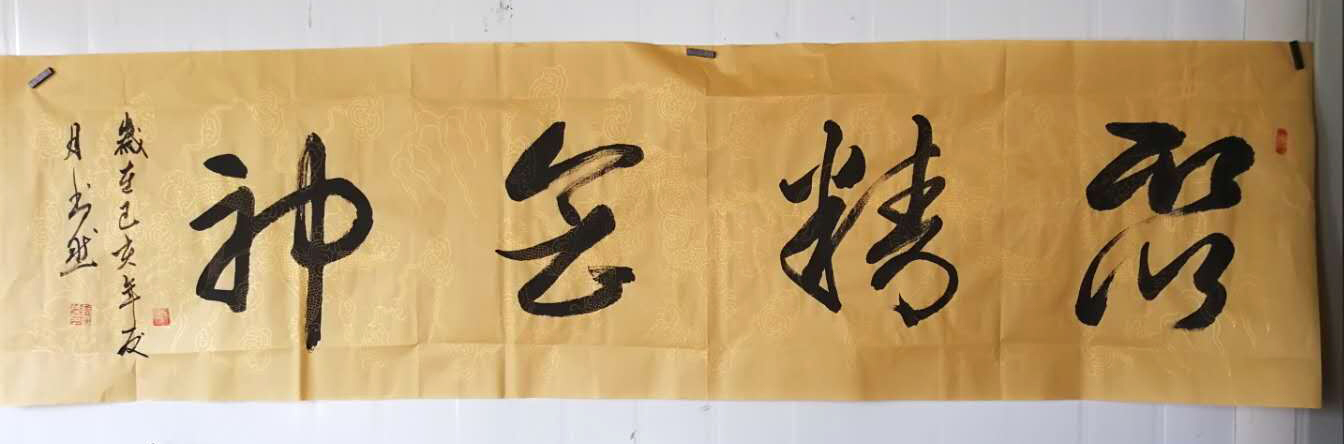 聚精会神
歲在己亥年夏
月书